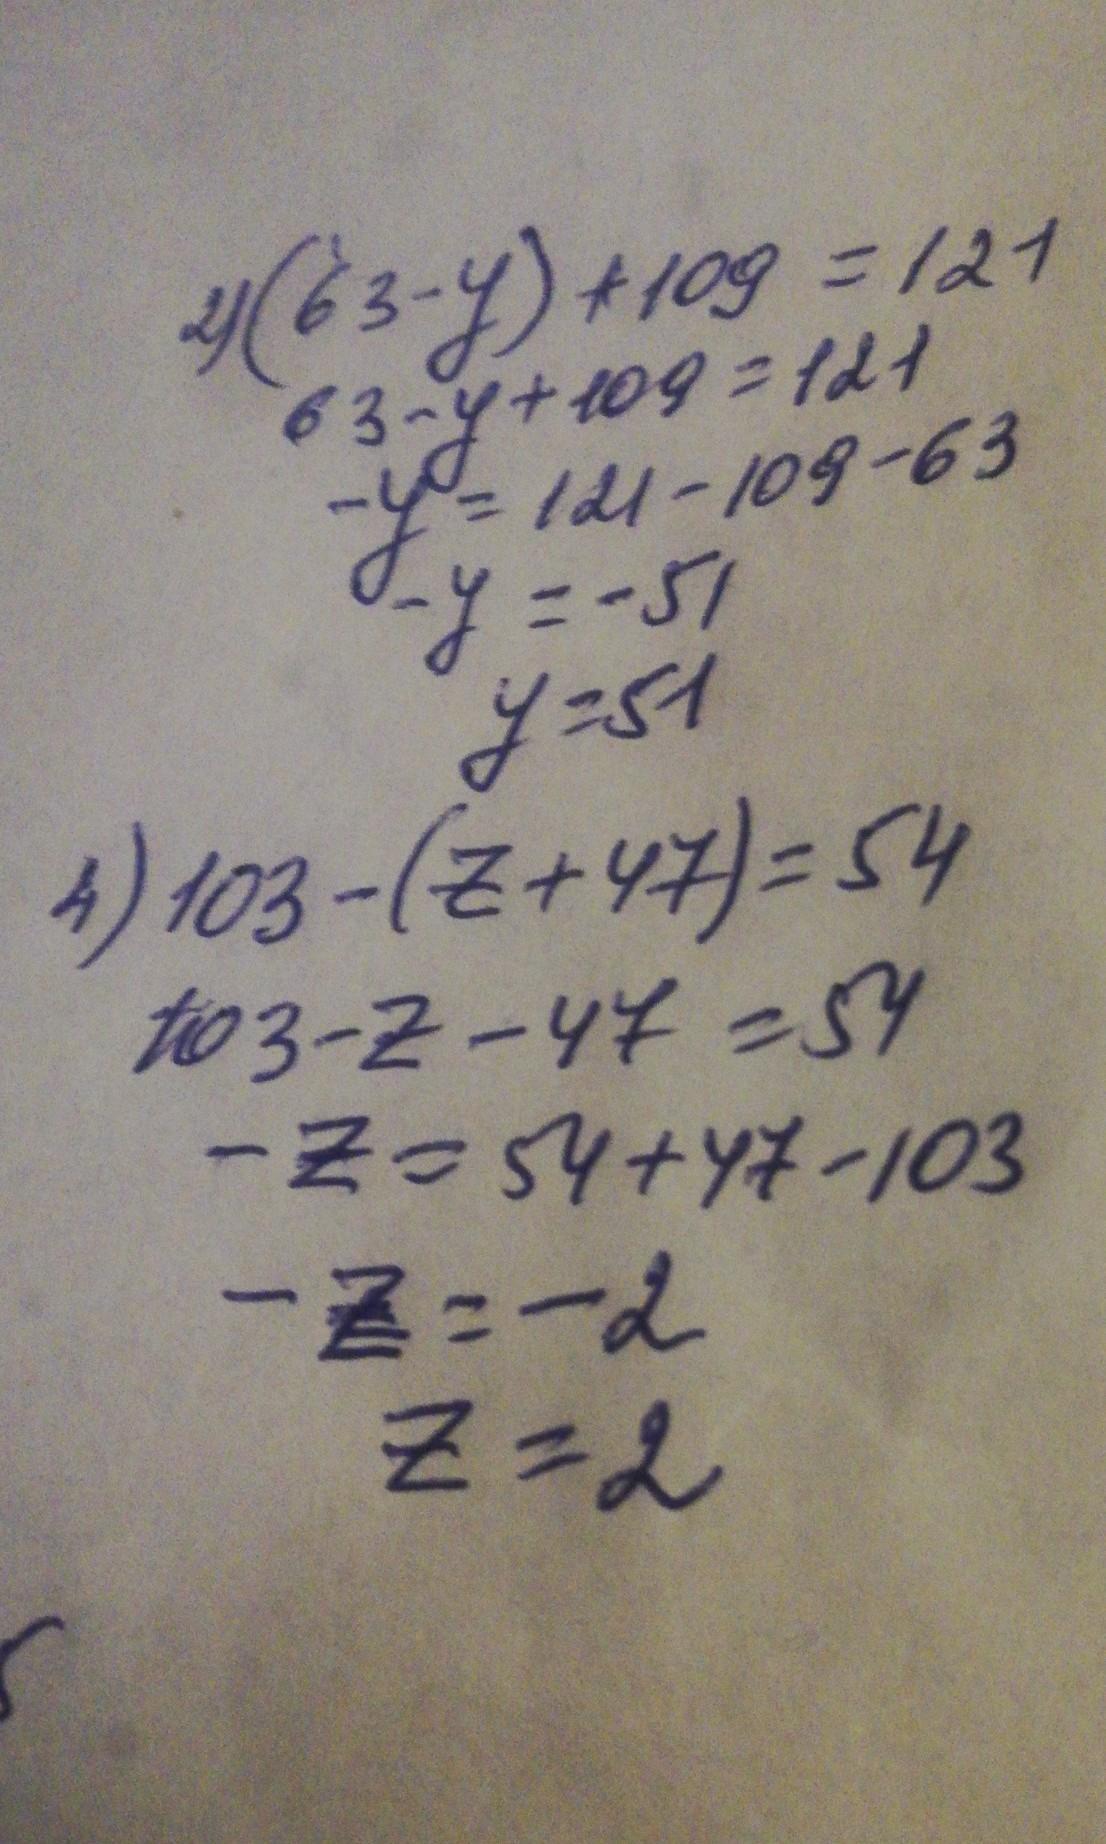 2) (63-y) + 109 = 121
63-y+109=121
-y = 121-109-63
-y = -51
y = 51
4) 103-(z+47)=54
103-z-47 = 54
-z = 54+47-103
-z = -2
z = 2